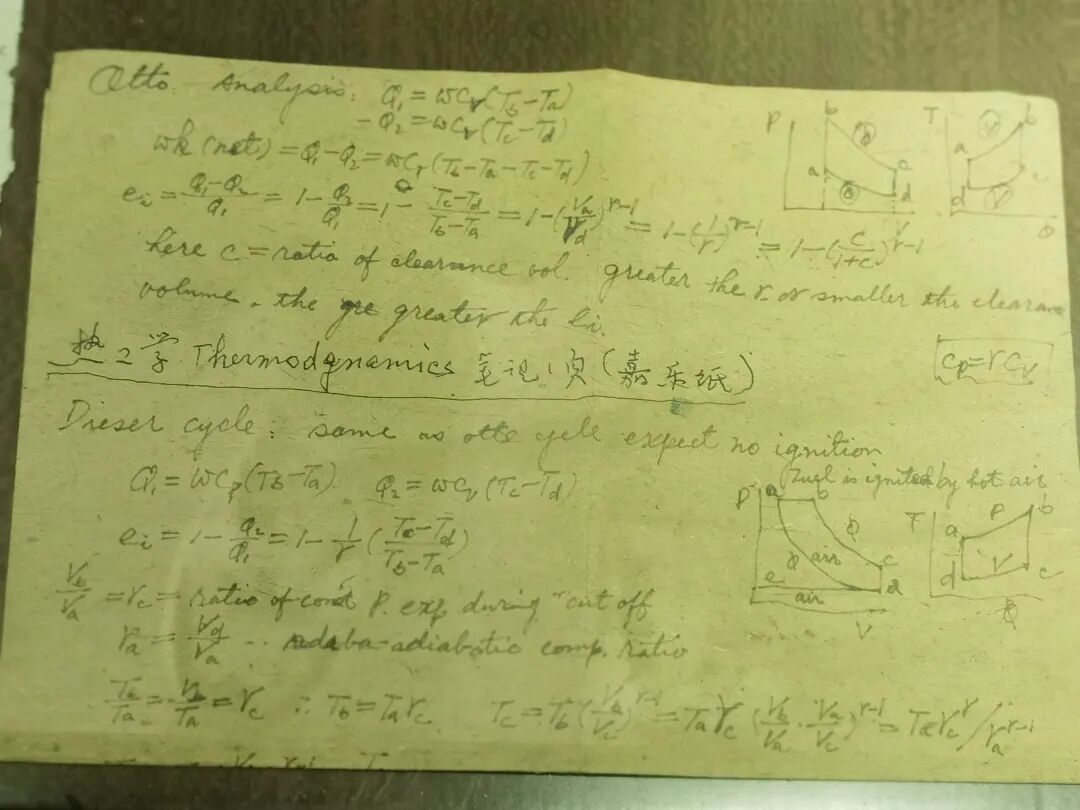 Otto Analysis: Q₁ = wCᵥ(T_b – T_a)
– Q₂ = wCᵥ(T_c – T_d)
wk (net) = Q₁ – Q₂ = wCᵥ(T_b – T_a – T_c – T_d)
e_i = (Q₁ – Q₂)/Q₁ = 1 – Q₂/Q₁ = 1 – (T_c – T_d)/(T_b – T_a) = 1 – (V_a/V_d)^(r–1) = 1 – (1/r)^(r–1) = 1 – (c/(1+c))^(r–1)
here c = ratio of clearance vol. greater the r or smaller the clearance
volume. the gre greater the e_i.
P b φ a c φ d V
T V b a c d V φ
热工学 Thermodynamics 笔记1页(嘉乐纸)
Cp = rCv
Dieser cycle: same as otto cycle expect no ignition
fuel is ignited by hot air
Q₁ = wCp(T_b – T_a) Q₂ = wCᵥ(T_c – T_d)
e_i = 1 – Q₂/Q₁ = 1 – 1/r ((T_c – T_d)/(T_b – T_a))
P a b φ φ air c e d air V
T P b a V d c φ
V_b/V_a = r_c = ratio of const P. exp during "cut off
r_a = V_d/V_a .. adaba-adiabatic comp. ratio
T_b/T_a = V_b/T_a = r_c ∴ T_b = T_a r_c T_c = T_b (V_b/V_c)^(r–1) = T_a r_c (V_b/V_a · V_a/V_c)^(r–1) = T_a r_c^r / r_a^(r–1)